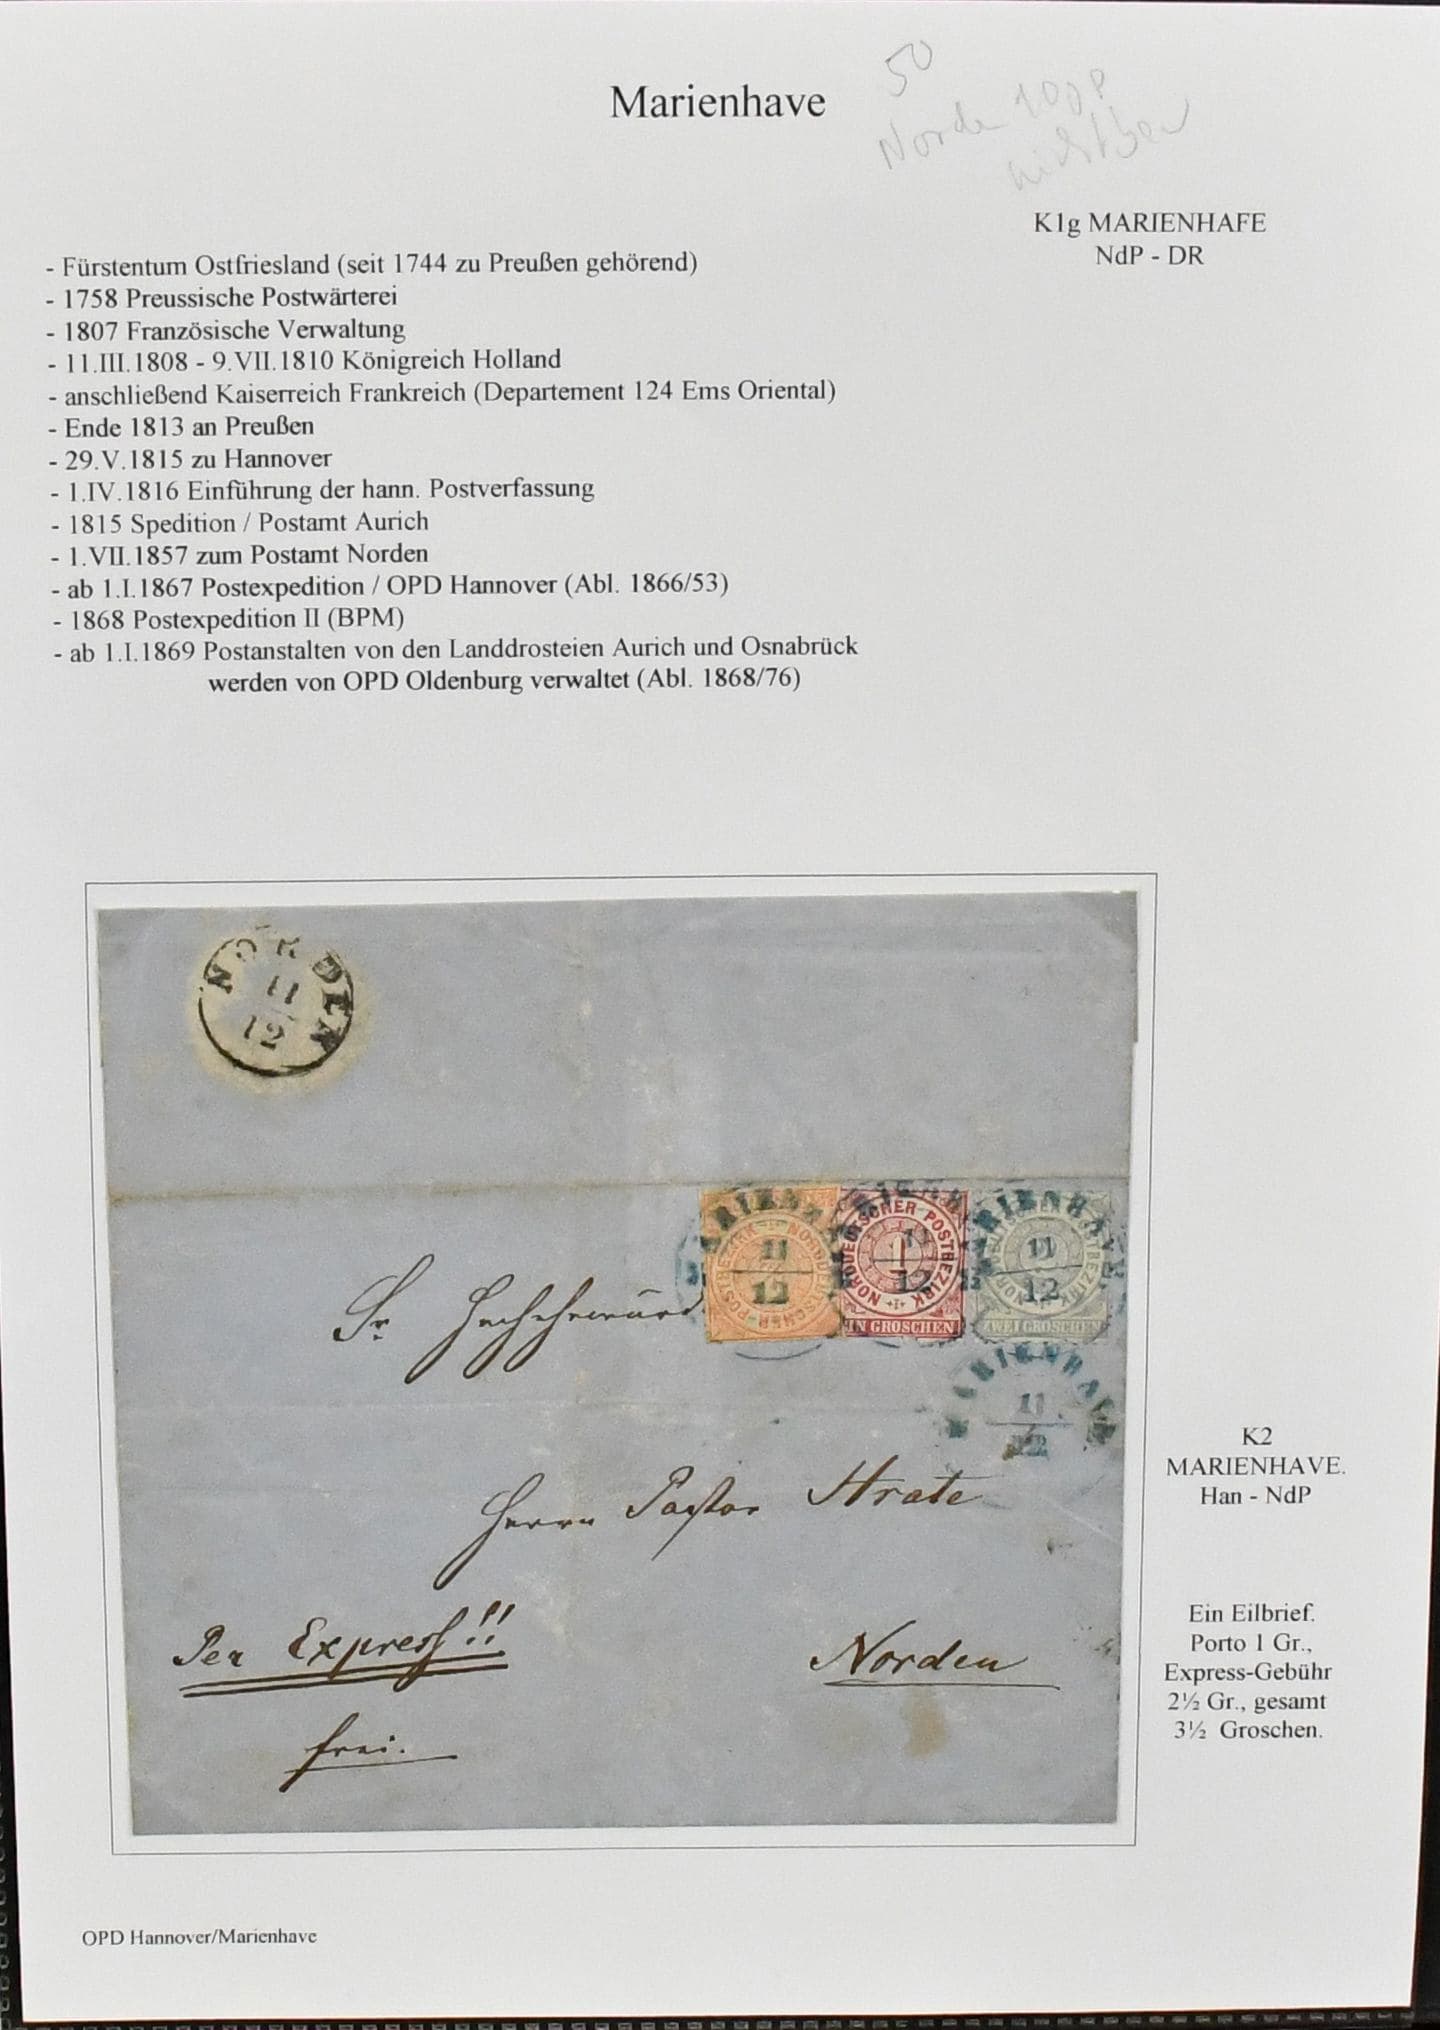 Marienhave
50
Norde 100P
K1g MARIENHAFE
NdP - DR
- Fürstentum Ostfriesland (seit 1744 zu Preußen gehörend)
- 1758 Preussische Postwärterei
- 1807 Französische Verwaltung
- 11.III.1808 - 9.VII.1810 Königreich Holland
- anschließend Kaiserreich Frankreich (Departement 124 Ems Oriental)
- Ende 1813 an Preußen
- 29.V.1815 zu Hannover
- 1.IV.1816 Einführung der hann. Postverfassung
- 1815 Spedition / Postamt Aurich
- 1.VII.1857 zum Postamt Norden
- ab 1.I.1867 Postexpedition / OPD Hannover (Abl. 1866/53)
- 1868 Postexpedition II (BPM)
- ab 1.I.1869 Postanstalten von den Landdrosteien Aurich und Osnabrück
werden von OPD Oldenburg verwaltet (Abl. 1868/76)
NORDEN
11
12
MARIENHAVE
11
12
NORDDEUTSCHER POSTBEZIRK
NORDDEUTSCHER POSTBEZIRK
1
11
12
EIN GROSCHEN
MARIENHAVE
NORDDEUTSCHER POSTBEZIRK
11
12
ZWEI GROSCHEN
MARIENHAVE
11
12
Sr. Hochehrwürd
Herrn Pastor Strate
Per Express!!
Norden
frei.
K2
MARIENHAVE.
Han - NdP
Ein Eilbrief.
Porto 1 Gr.,
Express-Gebühr
2½ Gr., gesamt
3½ Groschen.
OPD Hannover/Marienhave